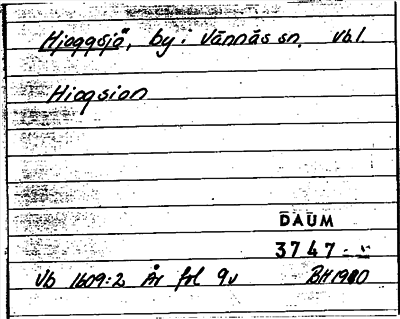 Hjoggsjö, by i Vännäs sn. Vbl.
Hiogsion
DAUM
3747
Vb 1609:2 År fol 9v BH 1980